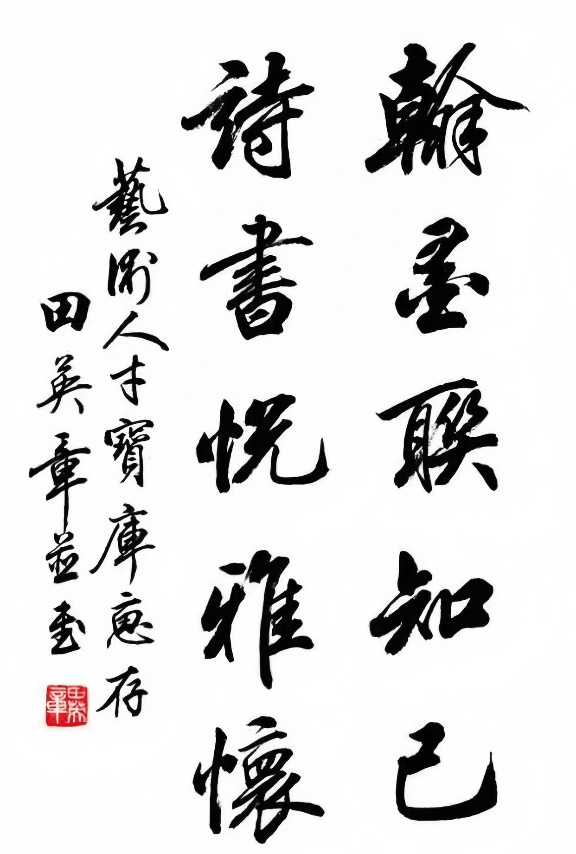 翰墨聯知己
詩書悦雅懷
藝術人才寶庫惠存
田英章並書
田英章